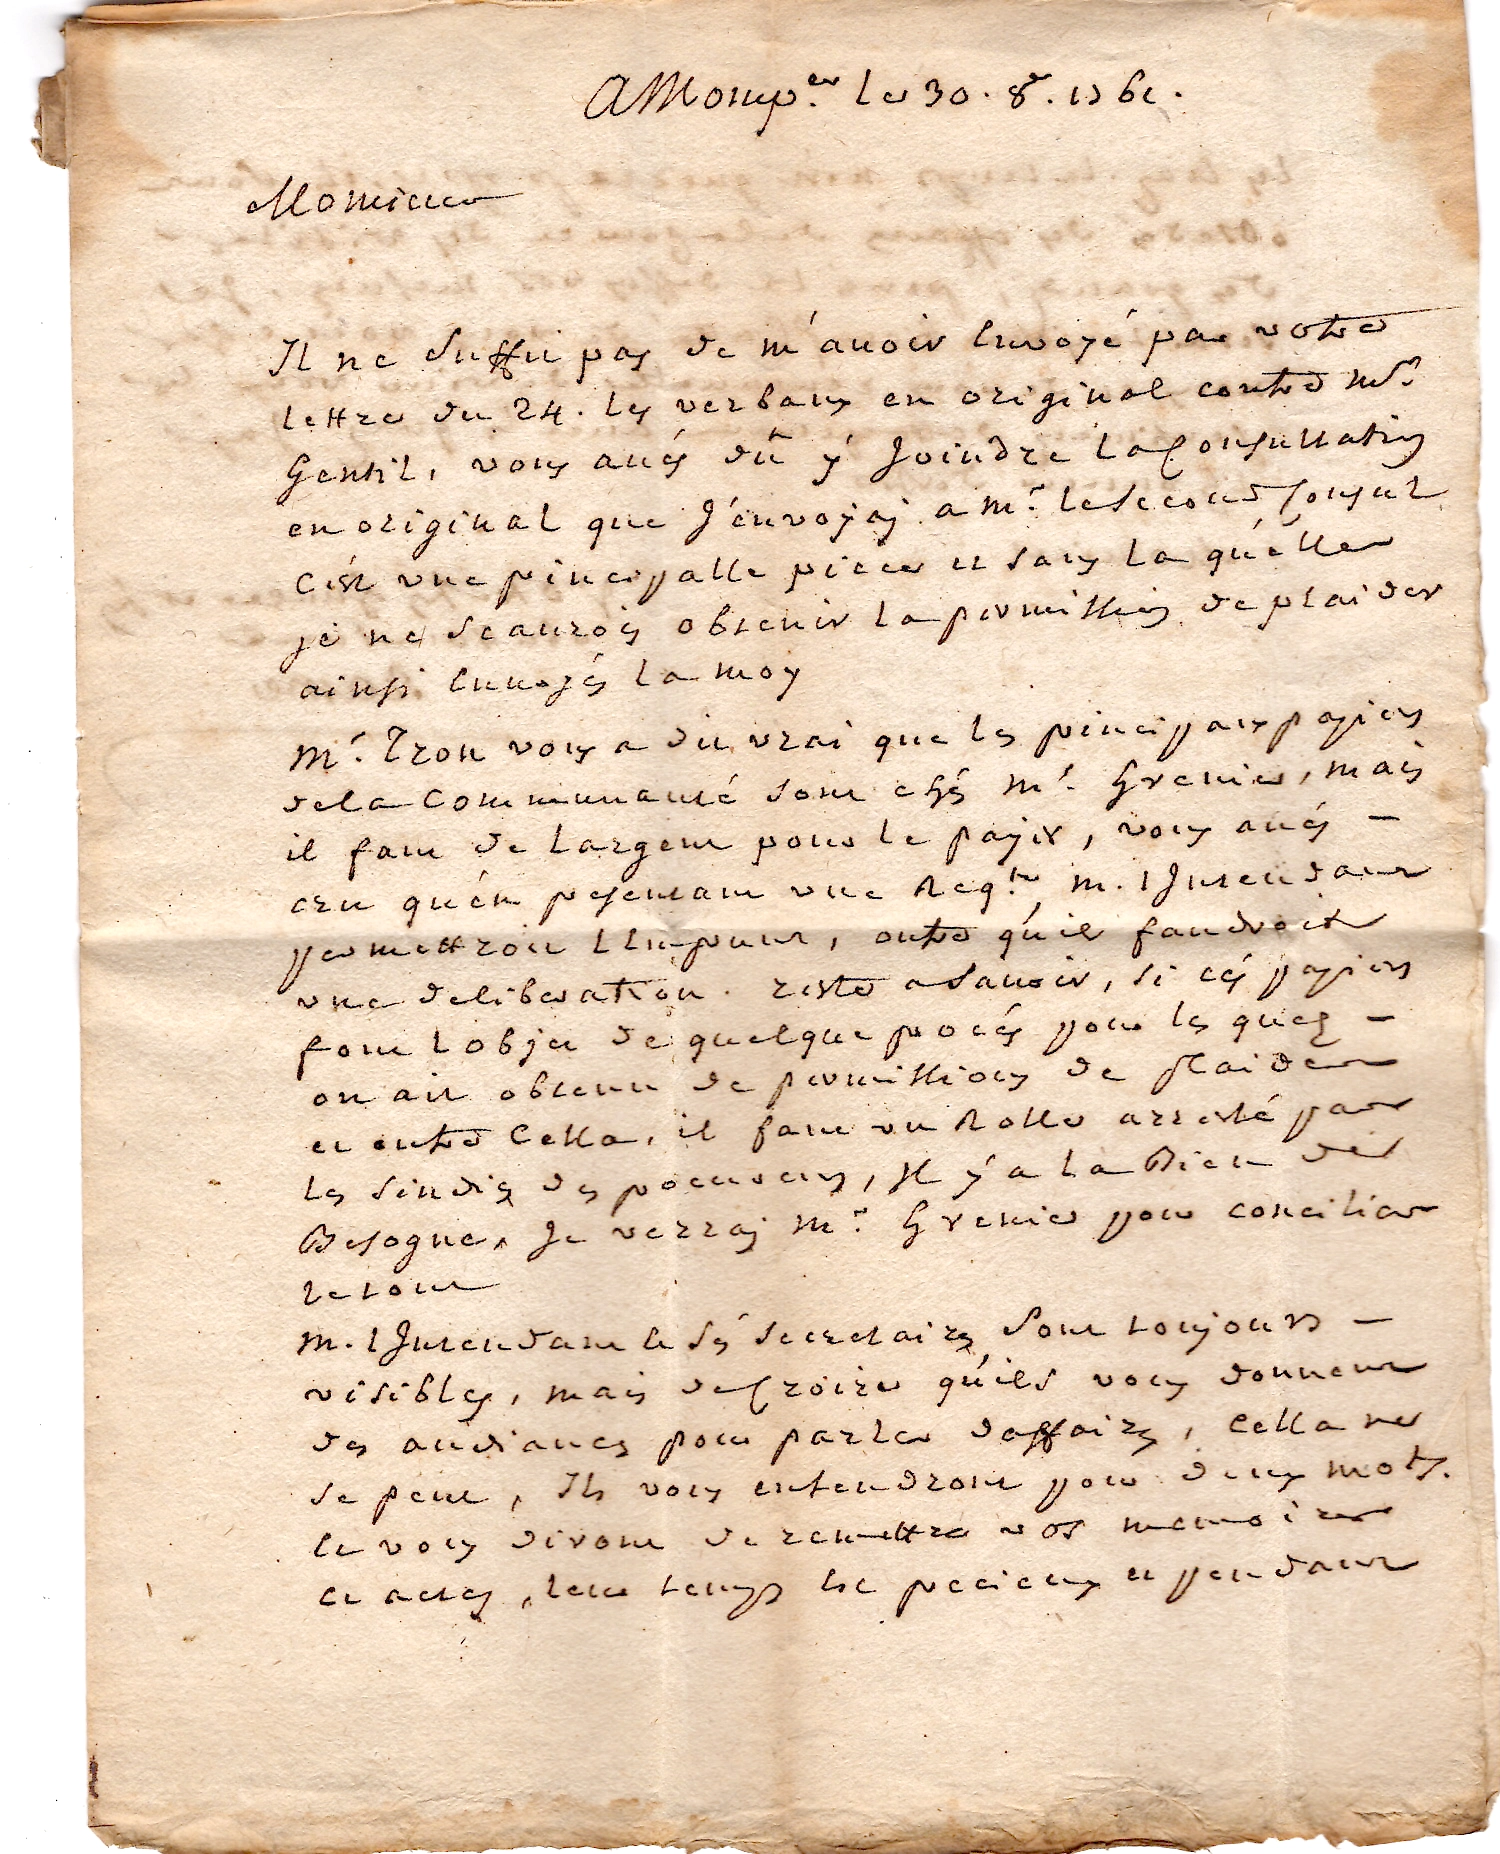 A Monp.er le 30. 8re. 1761.
Monsieur
Il ne suffit pas de m'avoir envoyé par votre
lettre du 24. les verbaux en original contre Mr.
Gentil, vous avés dû y joindre la Consultation
en original que j'envoyai a Mr. le second Consul
c'est une principalle piece et sans la quélle
je ne scaurois obtenir la permission de plaider
ainsi envoyés la moy
Mr. Tron vous a dit vrai que les principaux papiers
de la Communauté sont chés Mr. Grenier, mais
il faut de largent pour le payer, vous avés -
cru qu'en presentant une Reqte. M. l Intendant
permettroit l Emprunt, outre qu'il faudroit
une deliberation. reste a savoir, si cés papiers
font lobjet de quelque procés pour les quels -
on ait obtenu de permissions de plaider
et outre cella, il faut un Rolle arresté par
les sindics des procureurs, Il y a la Bien de
Besogne, Je verrai Mr. Grenier pour concilier
le tout
M. l Intendant et sés secretaires sont toujours -
visibles, mais de Croire qu'ils vous donnent
des audiances pour parler daffaires, cella ne
se peut, Ils vous entendront pour deux mots.
et vous diront de remettre vos memoires
et actes, leur temps est precieux et pendant